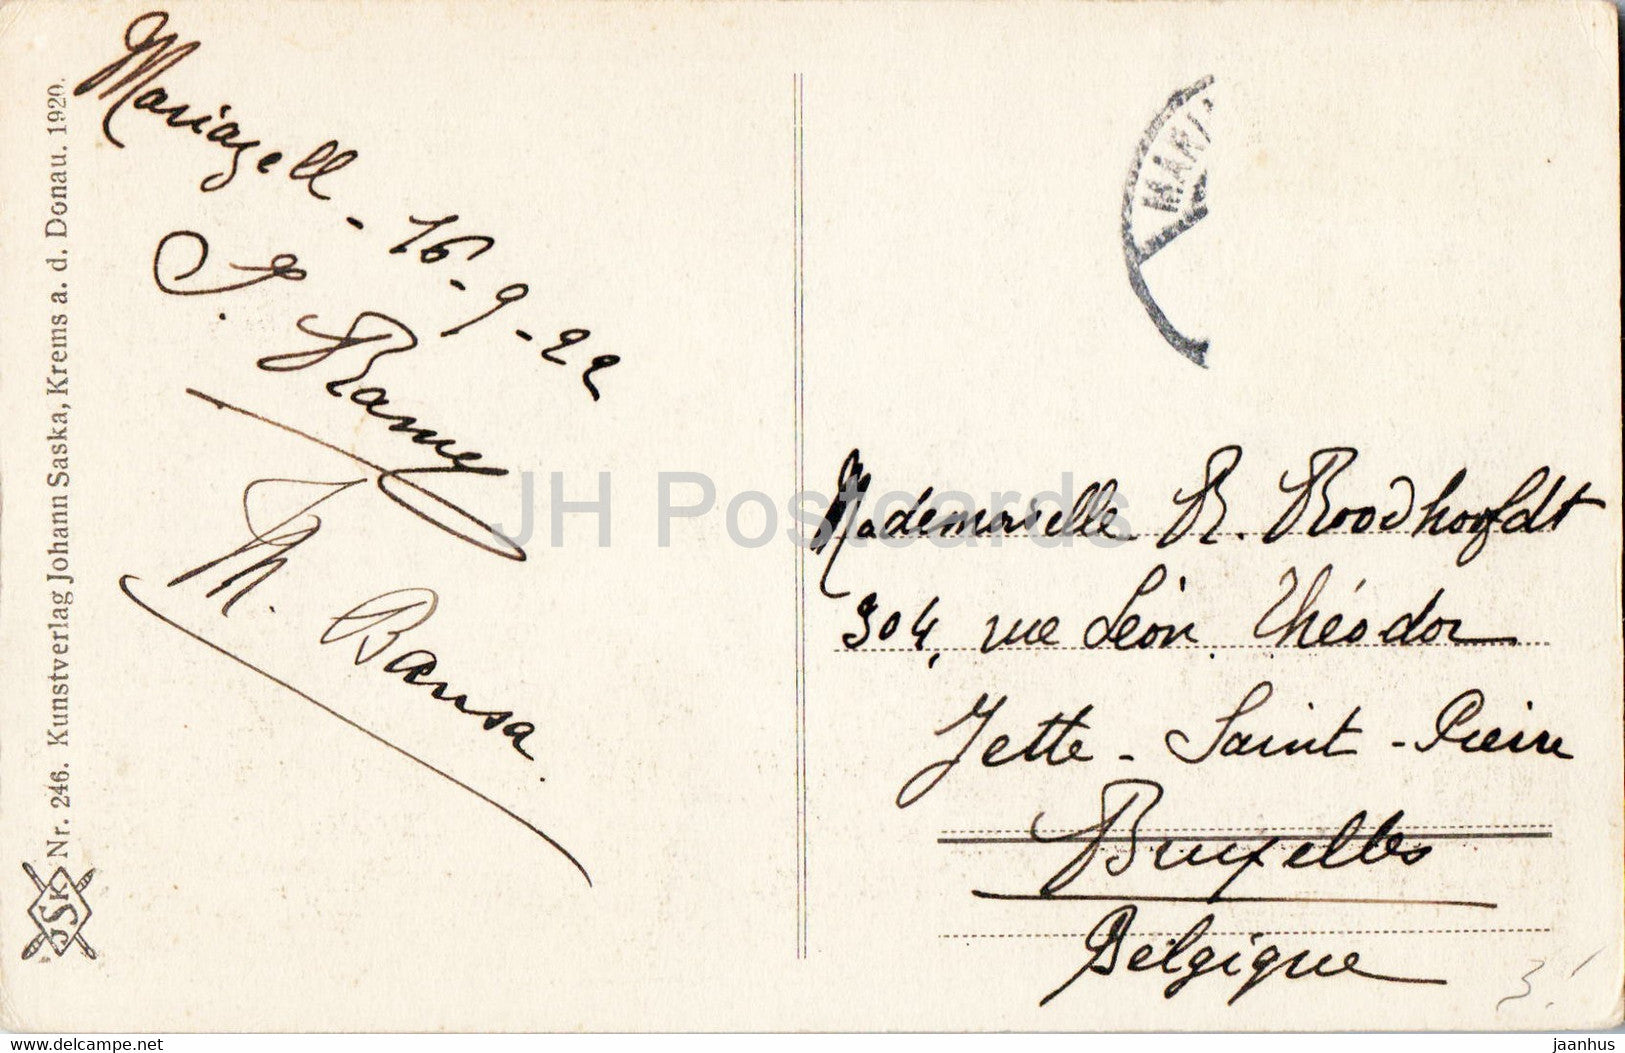 Mariazell - 16-9-22
J. Ramy
M. Bansa.
Nr. 246. Kunstverlag Johann Saska, Krems a. d. Donau. 1920.
JSK
MARI
Mademoiselle R. Roodhoofdt
304, rue Léon Théodor
Jette - Saint - Pierre
Bruxelles
Belgique
3.
JH Postcards
delcampe.net
jaanhus